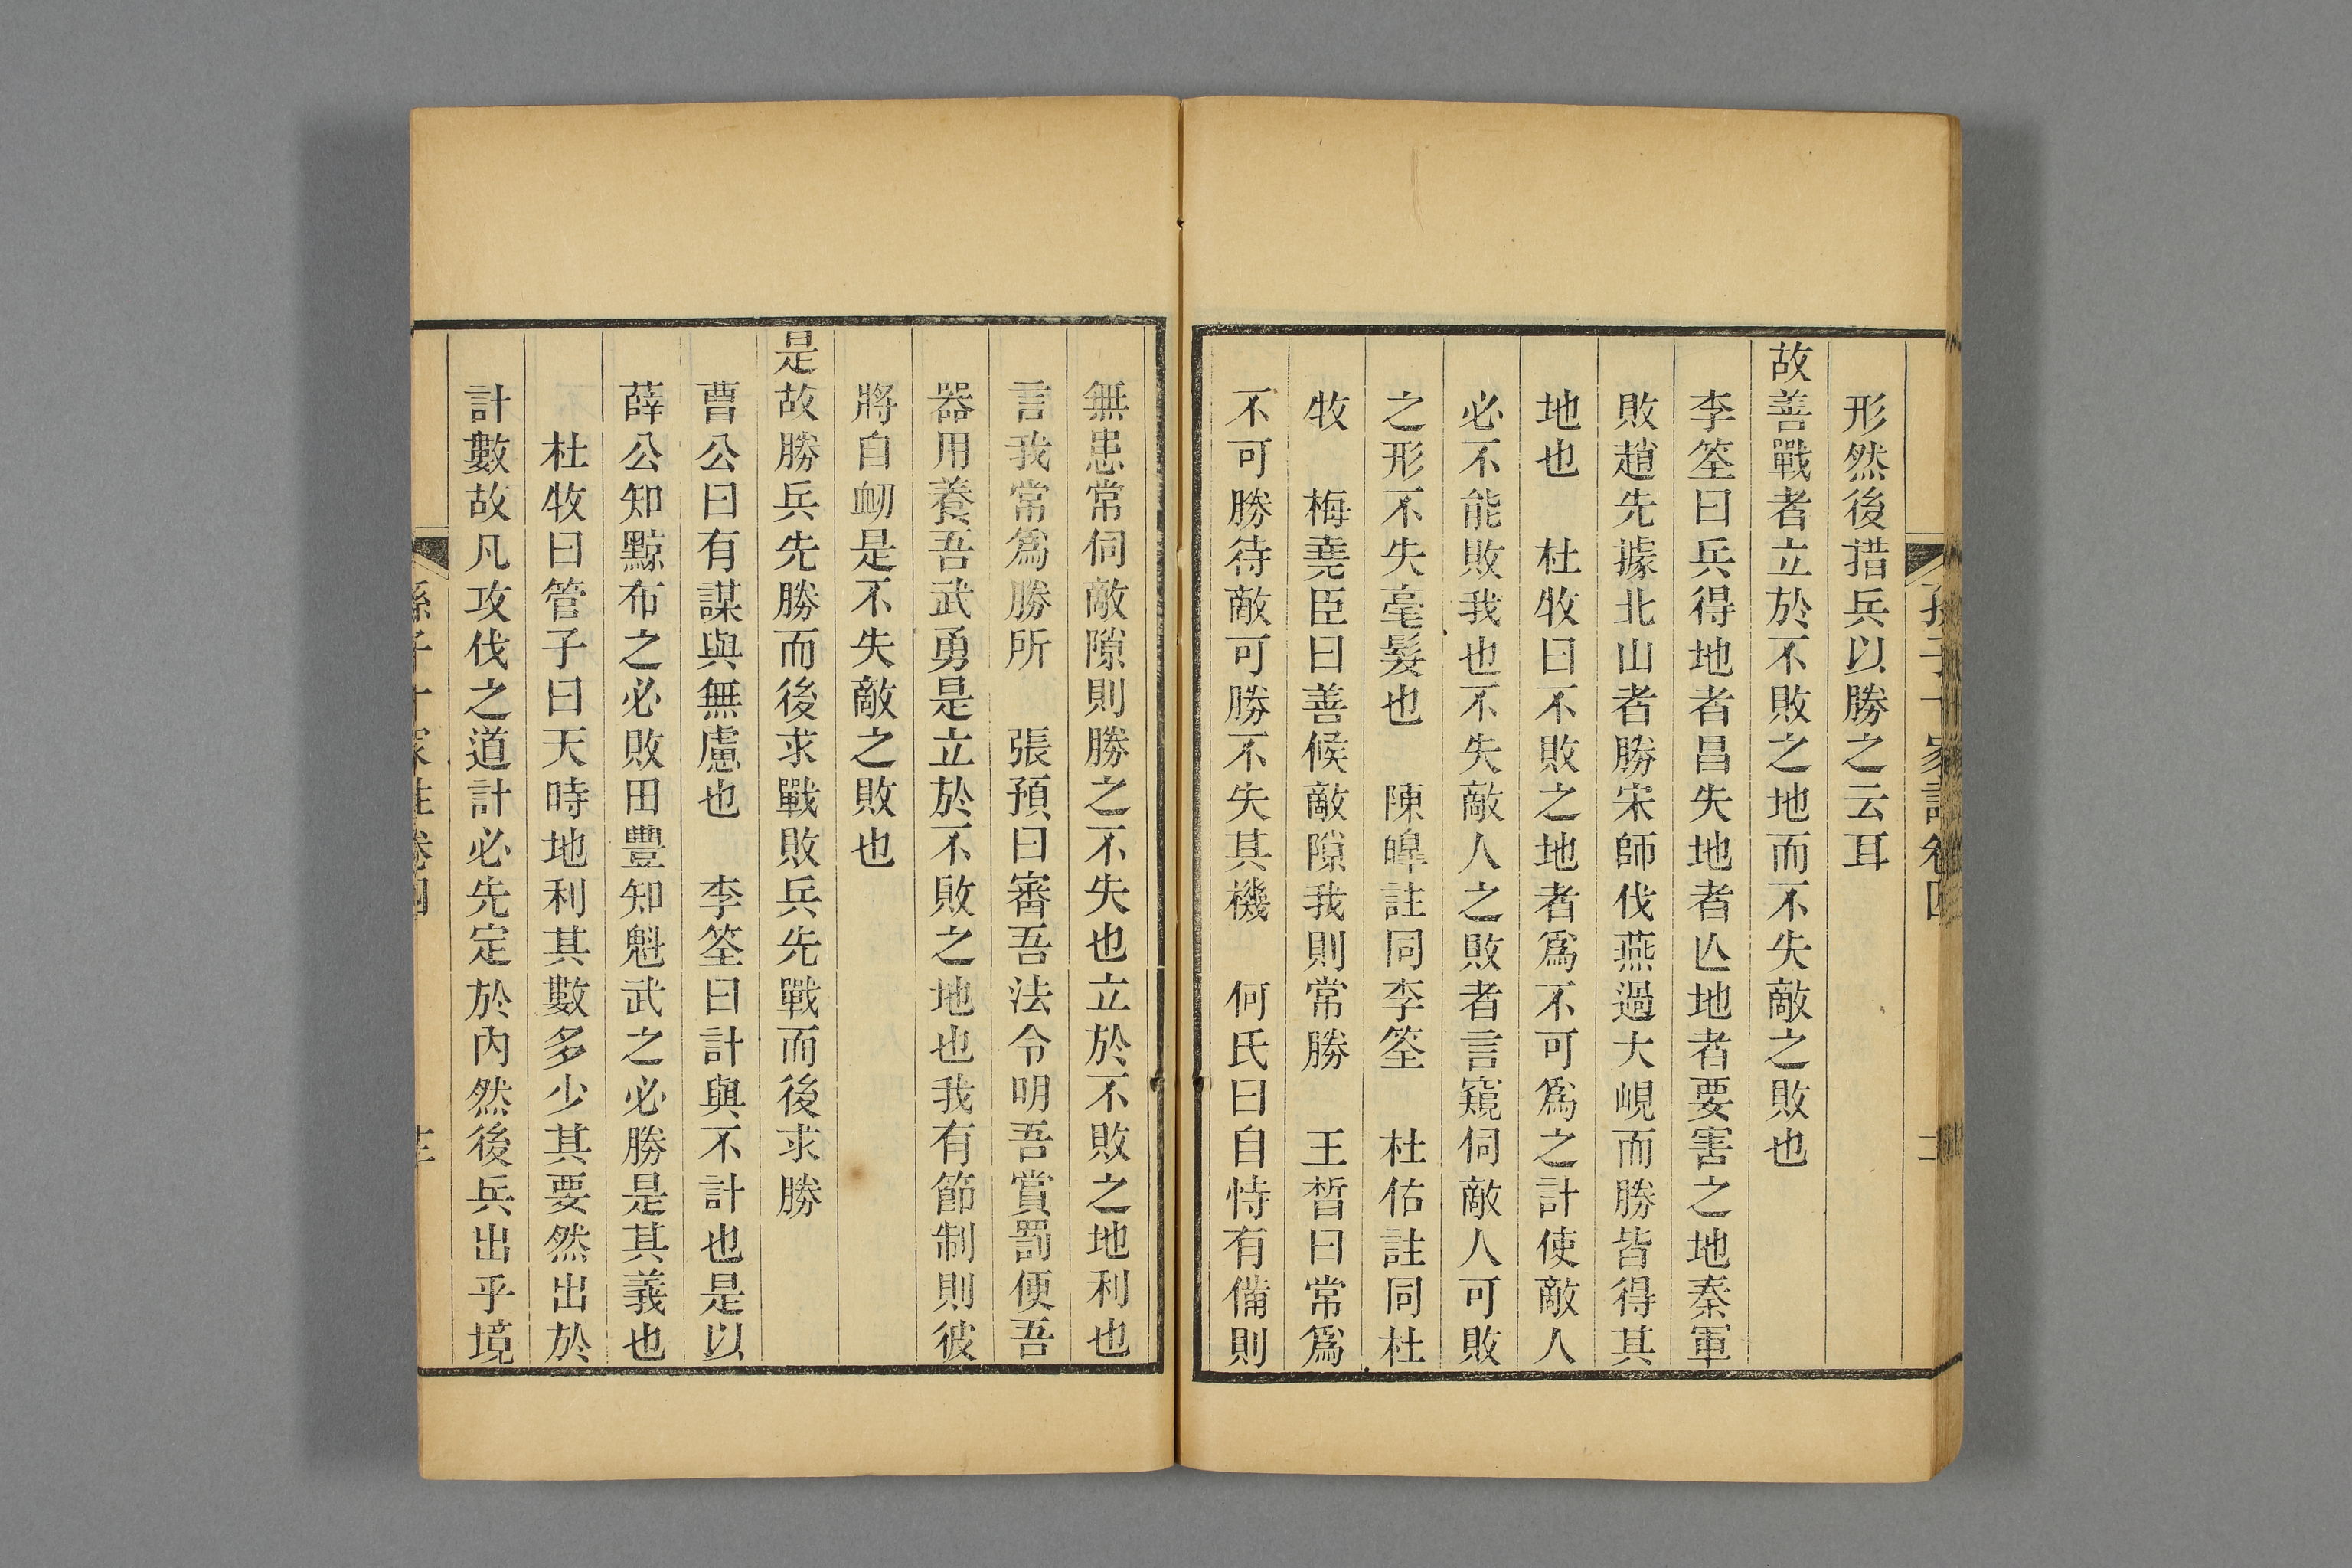 形然後措兵以勝之云耳
故善戰者立於不敗之地而不失敵之敗也
李筌曰兵得地者昌失地者亾地者要害之地秦軍
敗趙先據北山者勝宋師伐燕過大峴而勝皆得其
地也　杜牧曰不敗之地者爲不可爲之計使敵人
必不能敗我也不失敵人之敗者言窺伺敵人可敗
之形不失毫髮也　陳皥註同李筌　杜佑註同杜
牧　梅堯臣曰善候敵隙我則常勝　王晳曰常爲
不可勝待敵可勝不失其機　何氏曰自恃有備則
無患常伺敵隙則勝之不失也立於不敗之地利也
言我常爲勝所　張預曰審吾法令明吾賞罰便吾
器用養吾武勇是立於不敗之地也我有節制則彼
將自衂是不失敵之敗也
是故勝兵先勝而後求戰敗兵先戰而後求勝
曹公曰有謀與無慮也　李筌曰計與不計也是以
薛公知黥布之必敗田豐知魁武之必勝是其義也
杜牧曰管子曰天時地利其數多少其要然出於
計數故凡攻伐之道計必先定於內然後兵出乎境
孫子十家註卷四